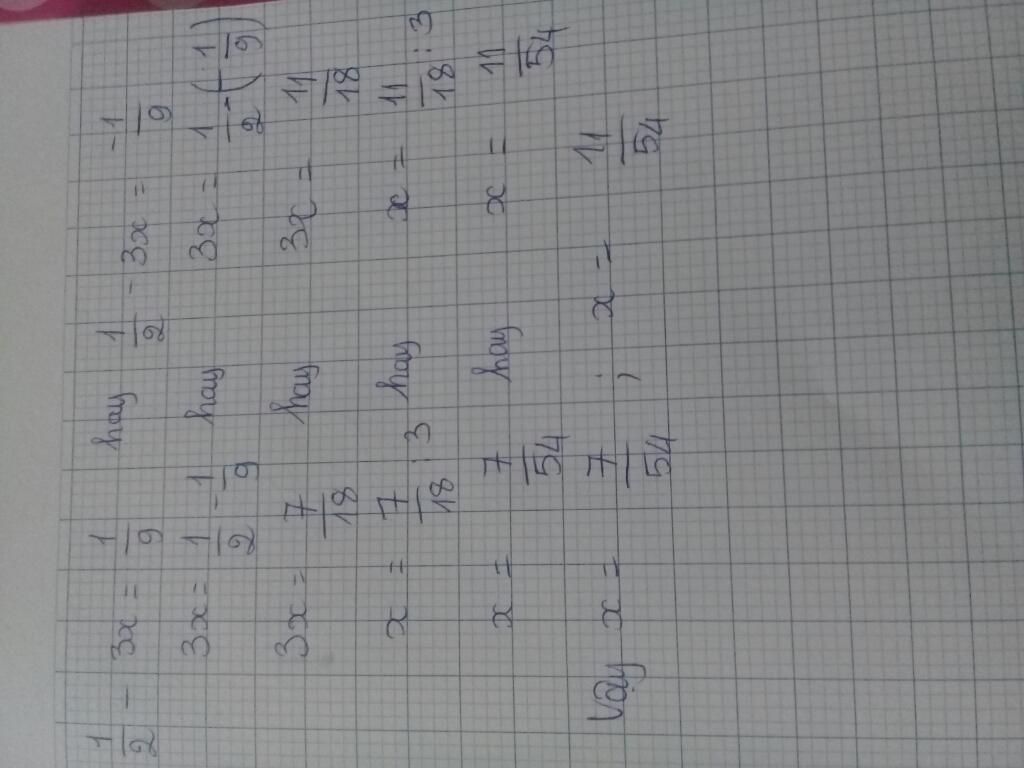 1/2 - 3x = 1/9 hay 1/2 - 3x = -1/9
3x = 1/2 - 1/9 hay 3x = 1/2 - (-1/9)
3x = 7/18 hay 3x = 11/18
x = 7/18 : 3 hay x = 11/18 : 3
x = 7/54 hay x = 11/54
Vậy x = 7/54 ; x = 11/54